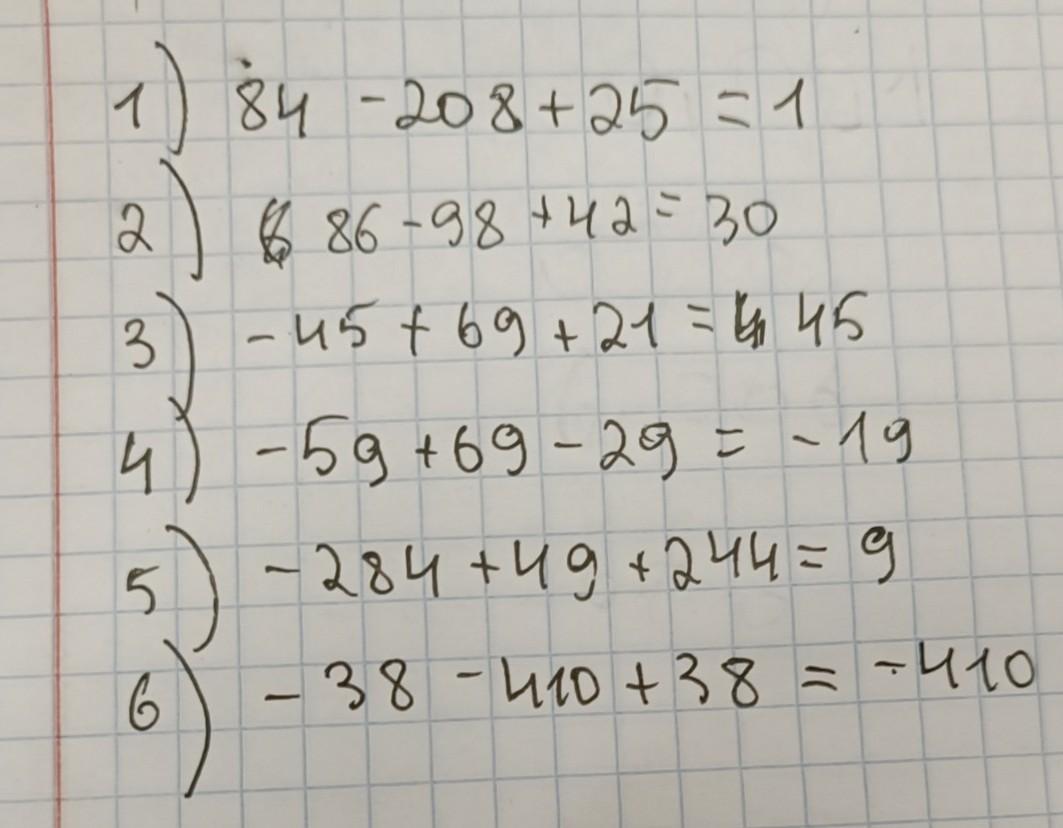 1) 84 - 208 + 25 = 1
2) 86 - 98 + 42 = 30
3) - 45 + 69 + 21 = 45
4) - 59 + 69 - 29 = - 19
5) - 284 + 49 + 244 = 9
6) - 38 - 410 + 38 = - 410